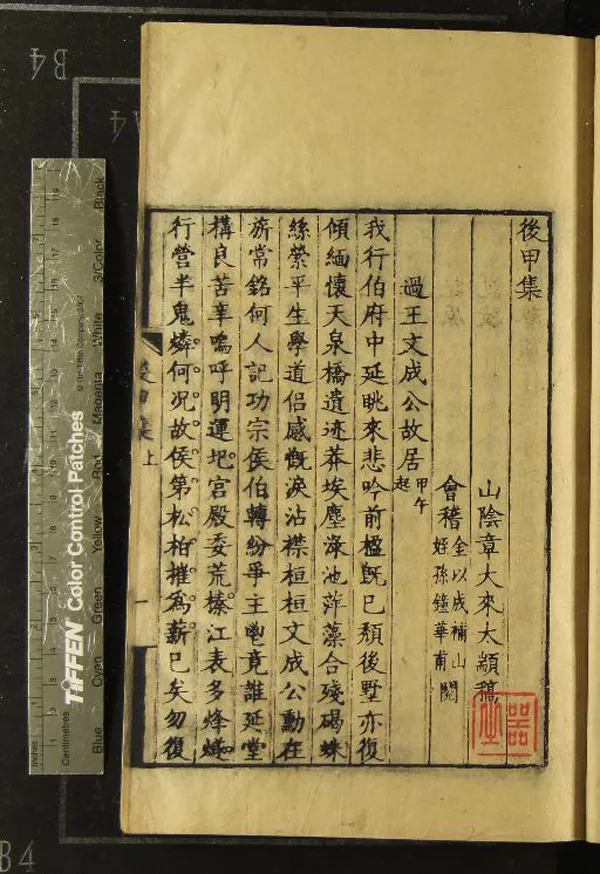 後甲集
山陰章大來太顓稿
會稽
金以成補山
姪孫鐘華甫
閱
過王文成公故居
甲午
起
我行伯府中延眺來悲吟前楹既已頹後墅亦復
傾緬懷天泉橋遺迹莽埃塵淥池萍藻合殘碣蛛
絲縈平生學道侶感慨淚沾襟桓桓文成公勳在
旂常銘何人記功宗侯伯轉紛爭主鬯竟誰延堂
構良苦辛嗚呼明運圯宮殿委荒榛江表多烽燧
行營半鬼燐何況故侯第松柏摧爲薪已矣勿復
後甲集
上
一
B4
B4
B4
TIFFEN Color Control Patches
© The Tiffen Company, 2007
Blue
Cyan
Green
Yellow
Red
Magenta
White
3/Color
Black
Inches
Centimetres